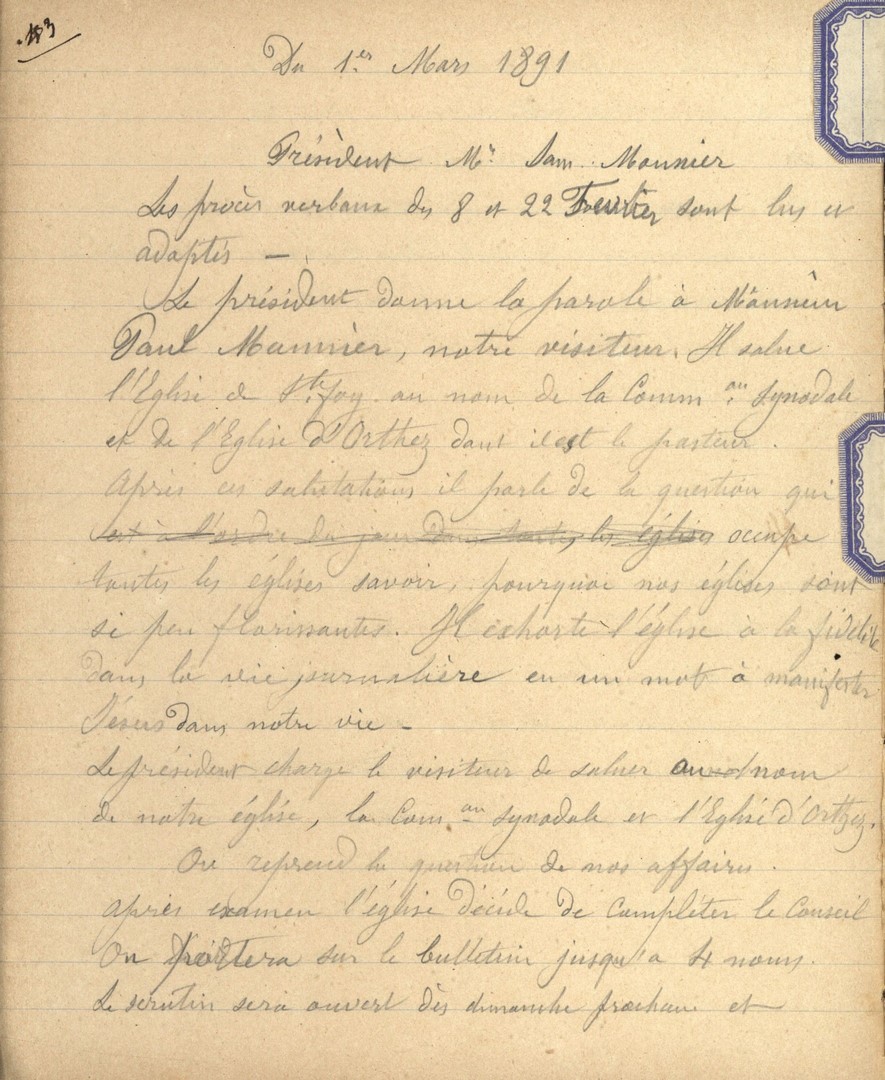 183
Du 1er Mars 1891
Président Mr Sam. Monnier
Les procès verbaux des 8 et 22 Fevrier sont lus et
adoptés —
Le président donne la parole à Monsieur
Paul Monnier, notre visiteur. Il salue
l'Eglise de Ste Foy au nom de la Common Synodale
et de l'Eglise d'Orthez dont il est le pasteur.
Après ces salutations il parle de la question qui
est à l'ordre du jour dans toutes les églises occupe
toutes les églises savoir, pourquoi nos églises sont
si peu florissantes. Il exhorte l'église à la fidélité
dans la vie journalière en un mot à manifester
Jésus dans notre vie —
Le président charge le visiteur de saluer au nom
de notre église, la Comon synodale et l'Eglise d'Orthez.
On reprend la question de nos affaires.
Après examen l'église décide de compléter le Conseil
On portera sur le bulletin jusqu'a 4 noms.
Le scrutin sera ouvert dès dimanche prochain et